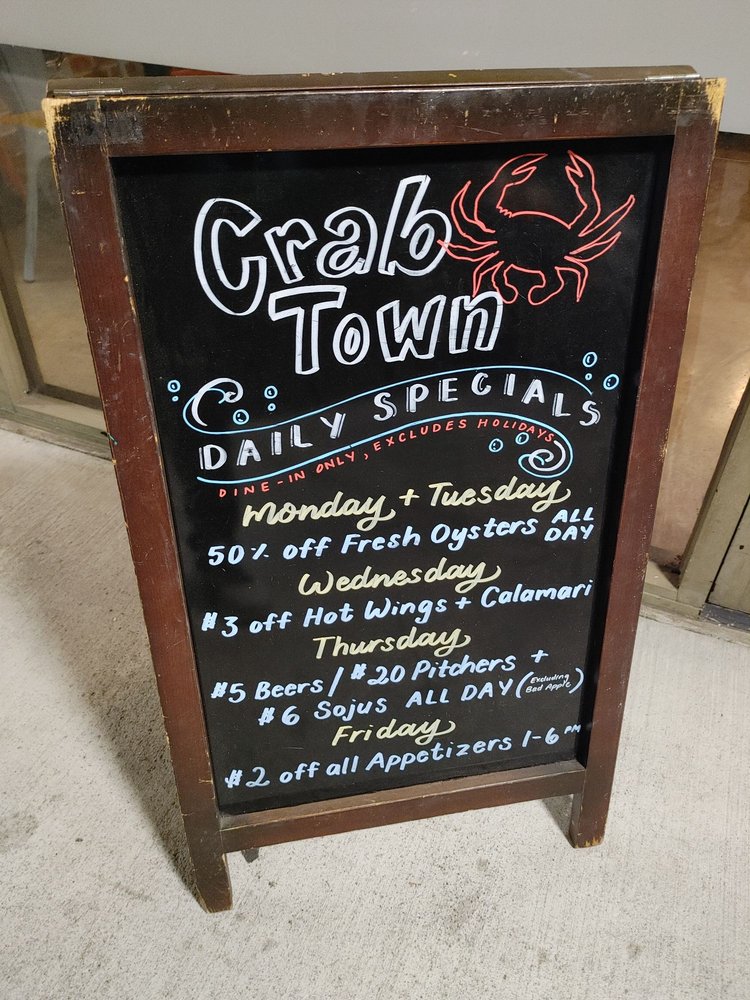 Crab
Town
DAILY SPECIALS
DINE-IN ONLY, EXCLUDES HOLIDAYS
Monday + Tuesday
50% off Fresh Oysters ALL DAY
Wednesday
$3 off Hot Wings + Calamari
Thursday
$5 Beers / $20 Pitchers +
$6 Sojus ALL DAY (Excluding Bad Apple)
Friday
$2 off all Appetizers 1-6 PM